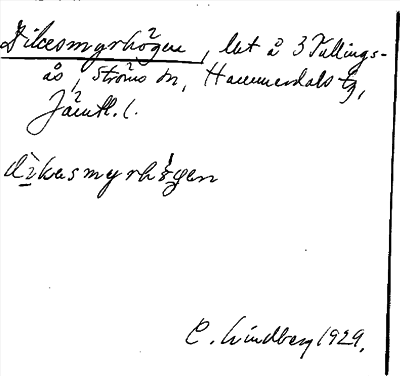 Dikesmyrhögen, lht å 3 Tullings-
ås, Ströms sn, Hammerdals tg,
Jämtl. l.
dikesmyrhögen
C. Lindberg 1929.